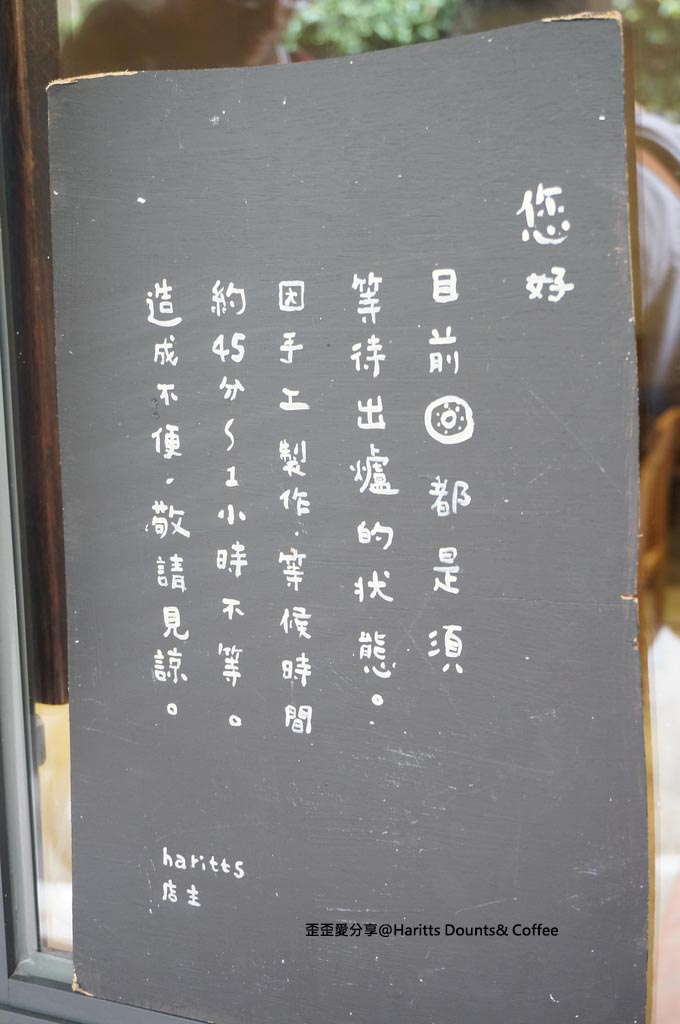 您好
目前都是須
等待出爐的狀態。
因手工製作.等候時間
約45分~1小時不等。
造成不便.敬請見諒。
haritts
店主
歪歪愛分享@Haritts Dounts& Coffee